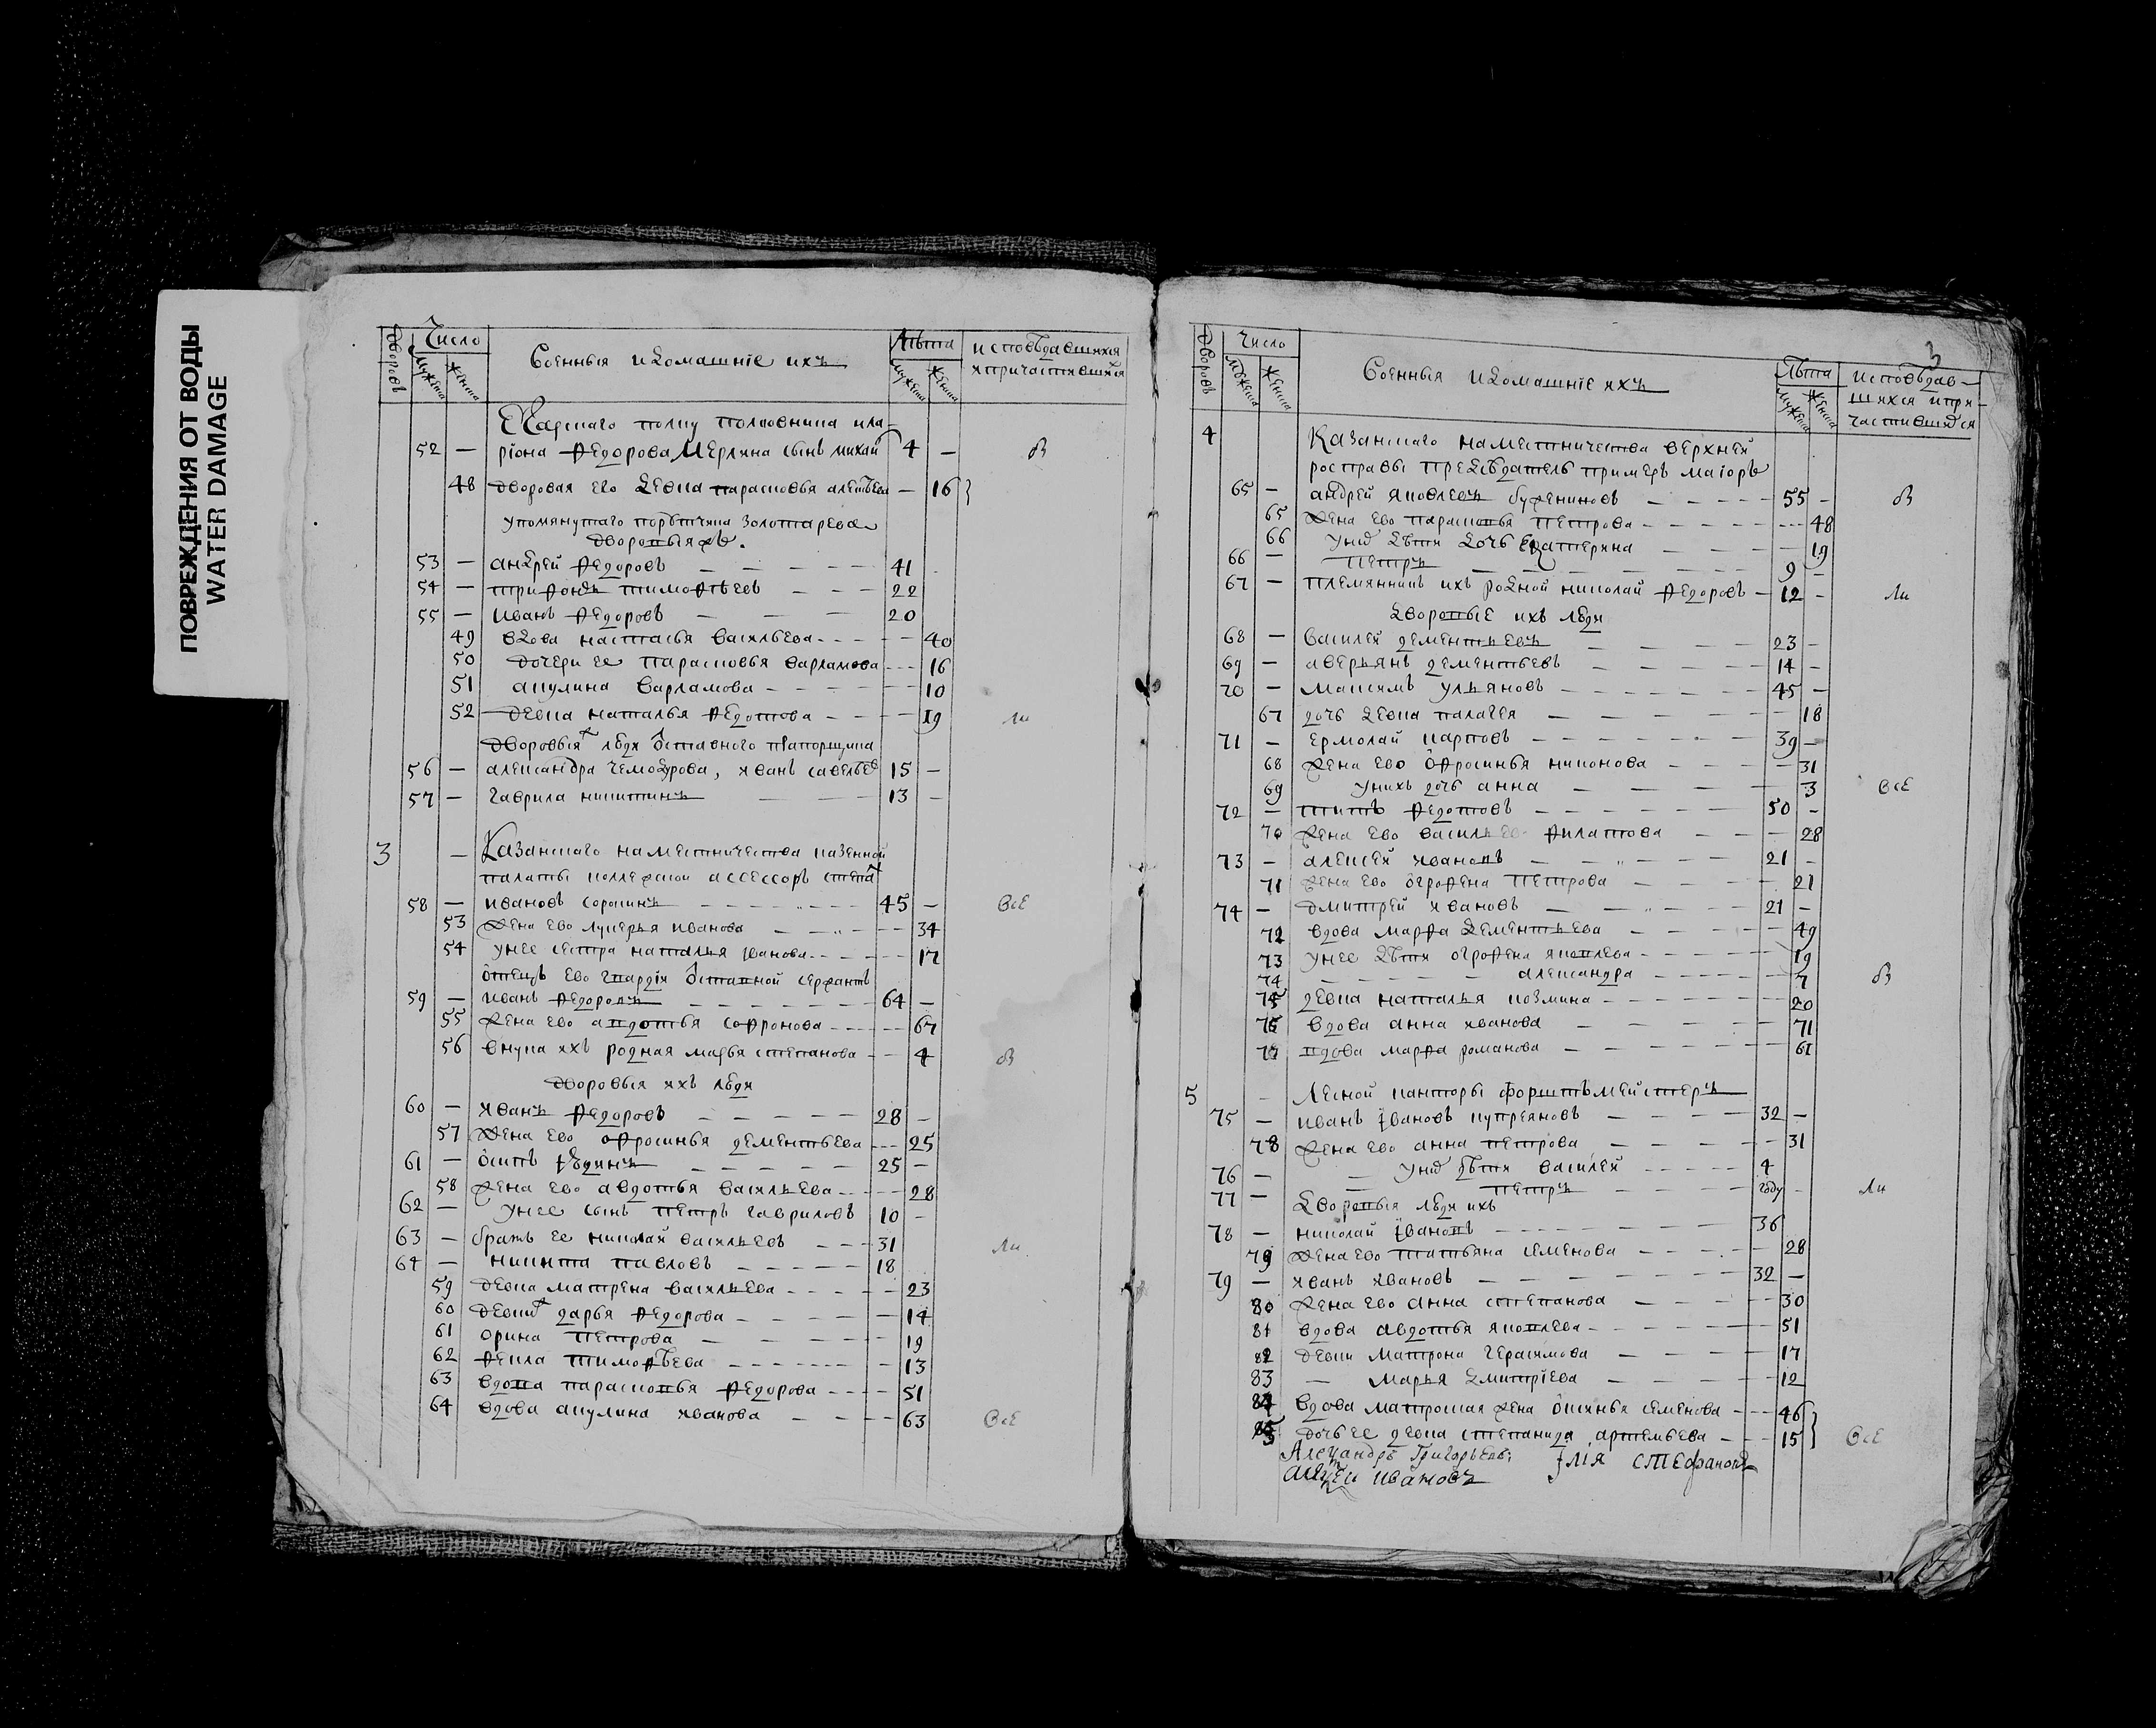 ПОВРЕЖДЕНИЯ ОТ ВОДЫ
WATER DAMAGE
Дворовъ Число Мужеска Женска Военныя и домашніе ихъ Лѣта Мужеска Женска исповѣдавшихся и причастившихся
полку полковника ила
52 — ріона Федорова Мерлина сынъ михай 4 — в
48 дворовая ево девка парасковья алеѣева — 16
упомянутаго порутчика Золотарева
дворовыя же.
53 — андрей Федоровъ 41
54 — трифонъ тимофѣевъ 22
55 — иванъ Федоровъ 20
49 вдова настасья васильева 40
50 дочери ее парасковья варламова 16
51 акулина варламова 10
52 девка наталья Федотова 19 ли
дворовыя люди отставного прапорщика
56 — александра чемодурова, иванъ савельев 15 —
57 — гаврила никитинъ 13 —
3 — Казанскаго наместничества казенной
палаты коллежской ассессоръ степа
58 — ивановъ сорокинъ 45 — все
53 Жена ево лукерья иванова 34
54 у нее сестра наталья иванова 17
отецъ ево гвардіи отставной сержантъ
59 — иванъ Федоровъ 64 —
55 Жена ево авдотья софронова 67
56 внука ихъ родная марья степанова — 4 в
дворовыя ихъ люди
60 — иванъ Федоровъ 28 —
57 Жена ево офросинья дементьева 25
61 — осипъ 25 —
58 Жена ево авдотья васильева 28
62 — у нее сынъ петръ гавриловъ 10 —
63 — братъ ее николай васильевъ 31 ли
64 — никита павловъ 18
59 девка матрена васильева 23
60 девки дарья Федорова 14
61 орина петрова 19
62 Фекла тимофѣева 13
63 вдова парасковья Федорова 51
64 вдова акулина иванова 63 все
3
Дворовъ Число Мужеска Женска Военныя и домашніе ихъ Лѣта Мужеска Женска исповѣдавшихся и причастившихся
4 Казанскаго наместничества верхней
росправы председатель примеръ маіоръ
65 — андрей яковлевъ бужениновъ 55 — в
65 Жена ево парасковья петрова 48
66 у них дѣти дочь Екатерина 19
66 — петръ 9 —
67 — племянникъ ихъ родной николай Федоровъ 12 — ли
дворовые ихъ люди
68 — василей дементьевъ 23 —
69 — аверьянъ дементьевъ 14 —
70 — максимъ ульяновъ 45 —
67 дочь девка палагея 18
71 — ермолай карповъ 39 —
68 Жена ево офросинья никонова 31
69 у нихъ дочь анна 3 все
72 — титъ Федотовъ 50 —
70 Жена ево филатова 28
73 — алексей ивановъ 21 —
71 Жена ево огрофена петрова 21
74 — дмитрей ивановъ 21 —
72 вдова марфа дементьева 49
73 у нее дѣти огрофена яковлева 19
74 александра 7 в
75 девка наталья козмина 20
76 вдова анна иванова 71
77 вдова марфа романова 61
5 — Лесной канторы форштъмейстеръ
75 — иванъ ивановъ купреяновъ 32 —
78 Жена ево анна петрова 31
76 — у них дѣти василей 4
77 — петръ году — ли
дворовыя люди ихъ
78 — николай ивановъ 36
79 Жена ево татьяна семенова 28
79 — иванъ ивановъ 32 —
80 Жена ево анна степанова 30
81 вдова авдотья яковлева 51
82 девки матрона герасимова 17
83 — марья дмитріева 12
84 вдова матроская жена оксинья семенова 46
85 дочь ее девка степанида артемьева 15 все
Александръ Григорьевъ: Илія Стефановъ
Ивановъ